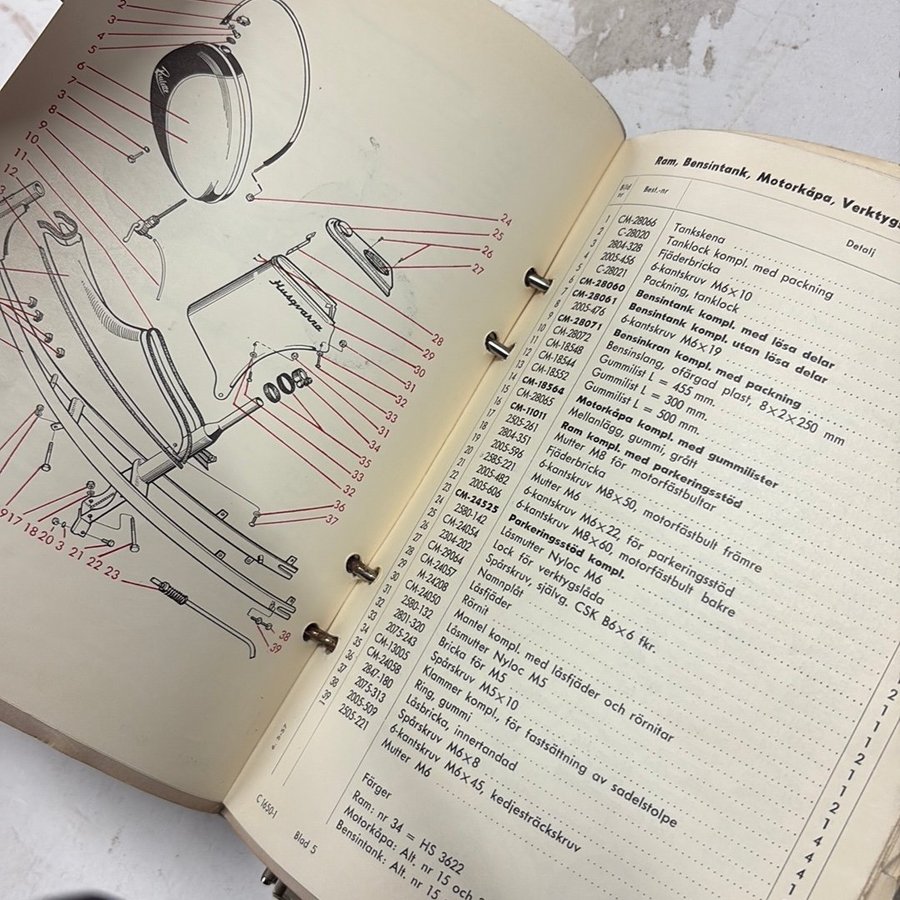 2
3
4
5
6
7
3
8
9
10
11
12
Radett
Husqvarna
24
25
26
27
28
29
30
31
32
33
31
34
35
33
32
36
37
38
39
9 17 18 20 3 21 22 23
Ram, Bensintank, Motorkåpa, Verktyg
Bild nr Best.-nr Detalj
1 CM-28066 Tankskena
2 C-28020 Tanklock kompl. med packning
3 2804-328 Fjäderbricka
4 2005-456 6-kantskruv M6×10
5 C-28021 Packning, tanklock
6 CM-28060 Bensintank kompl. med lösa delar
7 CM-28061 Bensintank kompl. utan lösa delar
8 2005-476 6-kantskruv M6×19
9 CM-28071 Bensinkran kompl. med packning
10 CM-28072 Bensinslang, ofärgad plast, 8×2×250 mm
11 CM-18548 Gummilist L = 455 mm.
12 CM-18544 Gummilist L = 300 mm.
13 CM-18552 Gummilist L = 500 mm.
14 CM-18564 Motorkåpa kompl. med gummilister
15 CM-28065 Mellanlägg, gummi, grått
16 CM-11011 Ram kompl. med parkeringsstöd
17 2505-261 Mutter M8 för motorfästbultar
18 2804-351 Fjäderbricka
19 2005-596 6-kantskruv M8×50, motorfästbult främre
20 2585-221 Mutter M6
21 2005-482 6-kantskruv M6×22, för parkeringsstöd
22 2005-606 6-kantskruv M8×60, motorfästbult bakre
23 CM-24525 Parkeringsstöd kompl.
24 2580-142 Låsmutter Nyloc M6
25 CM-24054 Lock för verktygslåda
26 2304-202 Spårskruv, självg. CSK B6×6 fkr.
27 CM-29064 Namnplåt
28 CM-24057 Låsfjäder
29 M-24208 Rörnit
30 CM-24050 Mantel kompl. med låsfjäder och rörnitar
31 2580-132 Låsmutter Nyloc M5
32 2801-320 Bricka för M5
33 2075-243 Spårskruv M5×10
34 CM-13005 Klammer kompl., för fastsättning av sadelstolpe
35 CM-24058 Ring, gummi
36 2847-180 Låsbricka, innertandad
37 2075-313 Spårskruv M6×8
38 2005-509 6-kantskruv M6×45, kedjesträckskruv
39 2505-221 Mutter M6
2
1
1
1
2
1
1
2
1
4
4
4
1
Färger
Ram: nr 34 = HS 3622
Motorkåpa: Alt. nr 15 och
Bensintank: Alt. nr 15
C 1650-1
Blad 5